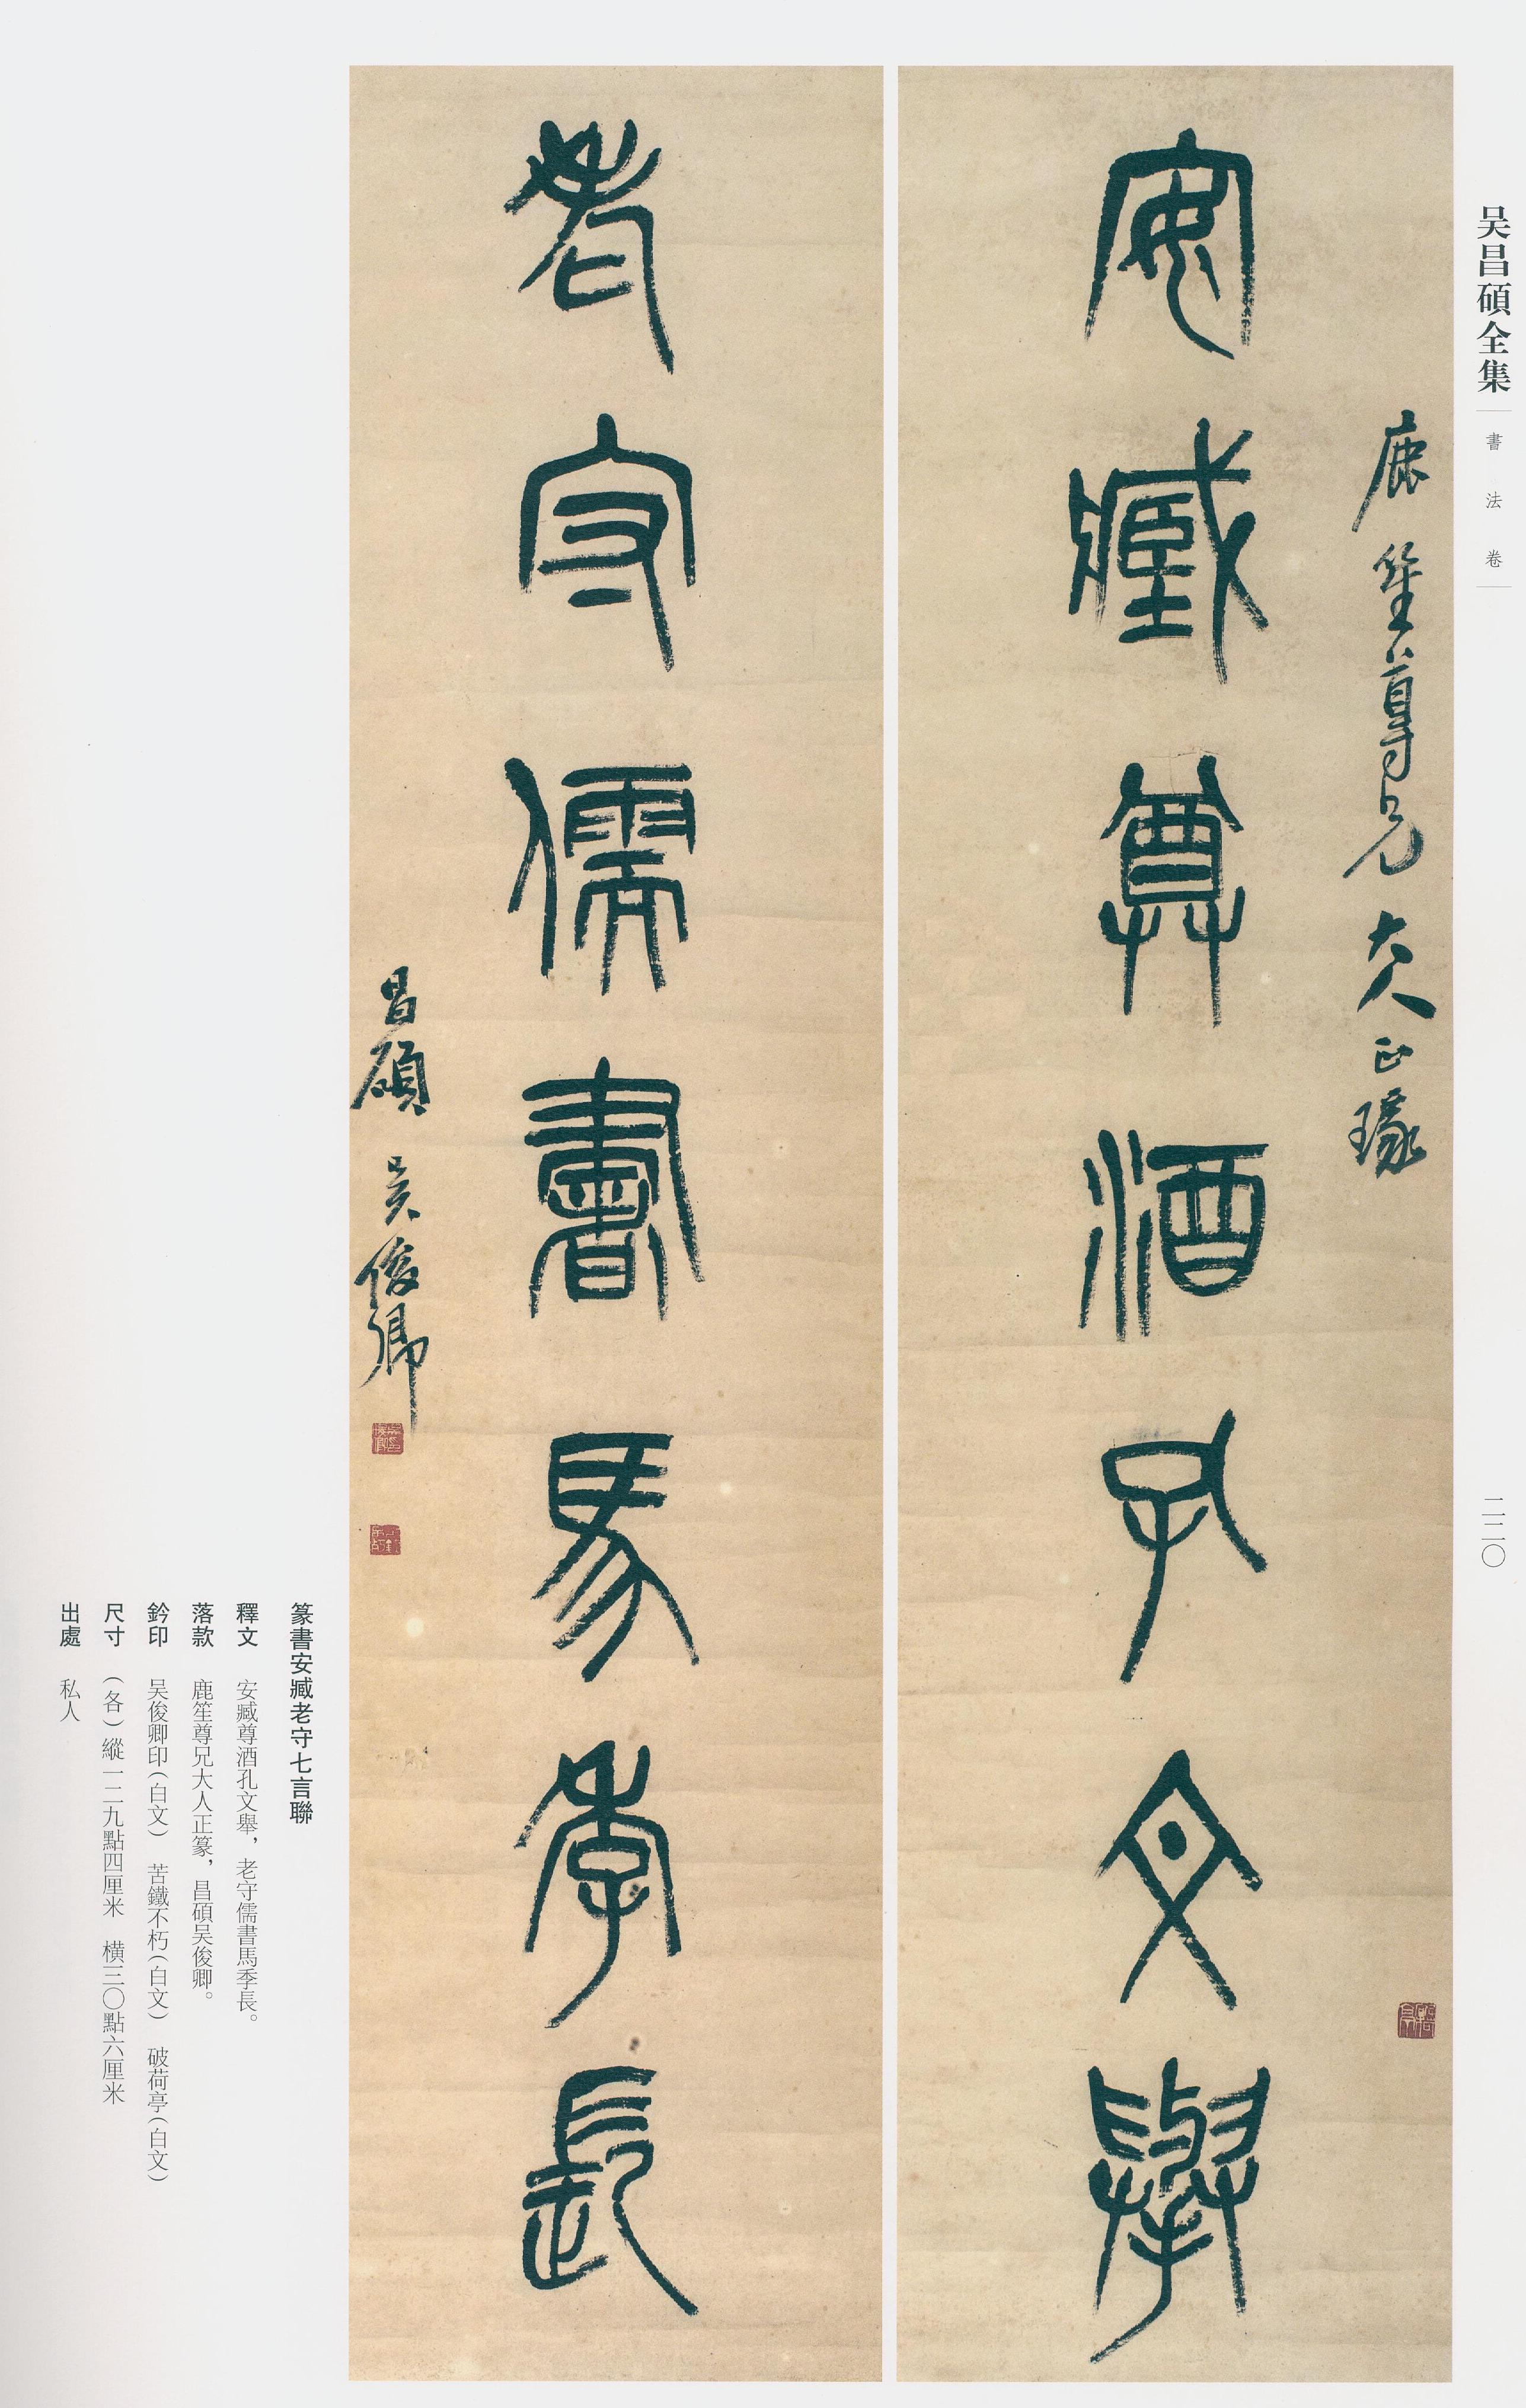 吴昌碩全集
書法卷
二二〇
鹿笙尊兄大人正瑑
安臧尊酒孔文舉
老守儒書馬季長
昌碩吴俊卿
篆書安臧老守七言聯
釋文 安臧尊酒孔文舉，老守儒書馬季長。
落款 鹿笙尊兄大人正篆，昌碩吴俊卿。
鈐印 吴俊卿印（白文） 苦鐵不朽（白文） 破荷亭（白文）
尺寸 （各）縱一二九點四厘米 橫三〇點六厘米
出處 私人